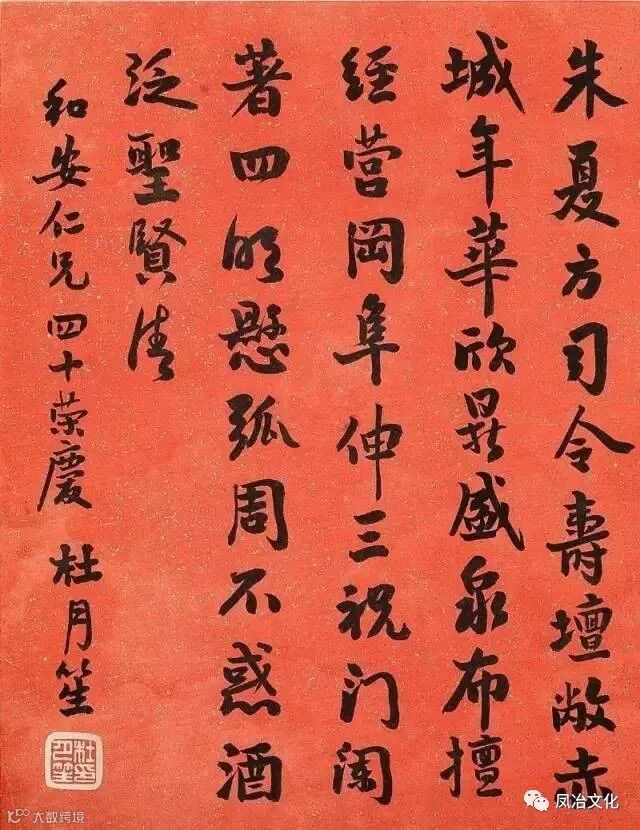 朱夏方司令壽壇敞赤
城年華欣晨盛泉布擅
經营岡阜伸三祝门阑
著四明懸弧周不惑酒
泛聖賢清
和安仁兄四十荣慶
杜月笙
杜月笙印
大数跨境
凤冶文化